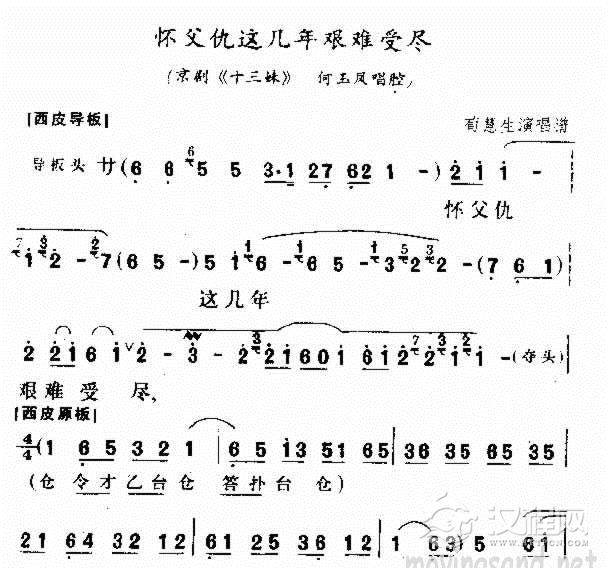 怀父仇这几年艰难受尽
(京剧《十三妹》 何玉凤唱腔)
[西皮导板] 荀慧生演唱谱
导板头 サ( 6 6 6 5 5 3·1 27 62 1 - ) 2 1 1 -
怀父仇
7 1 3 2 - 2 7 ( 6 5 - ) 5 1 1 6 - 1 6 5 - 1 3 5 2 3 2 - ( 7 6 1 )
这几年
2 2 1 6 1 ∨ 2 - 3 - 2 3 2 1 6 0 1 6 1 2 7 2 3 1 1 - (夺头)
艰难受 尽,
[西皮原板]
4/4 ( 1 6 5 3 2 1 | 6 5 13 51 65 | 36 35 65 35 |
(仓 令才乙台仓 答扑台 仓)
21 64 32 12 | 65 12 12 12 | 1 63) 5 61 |
汉程网